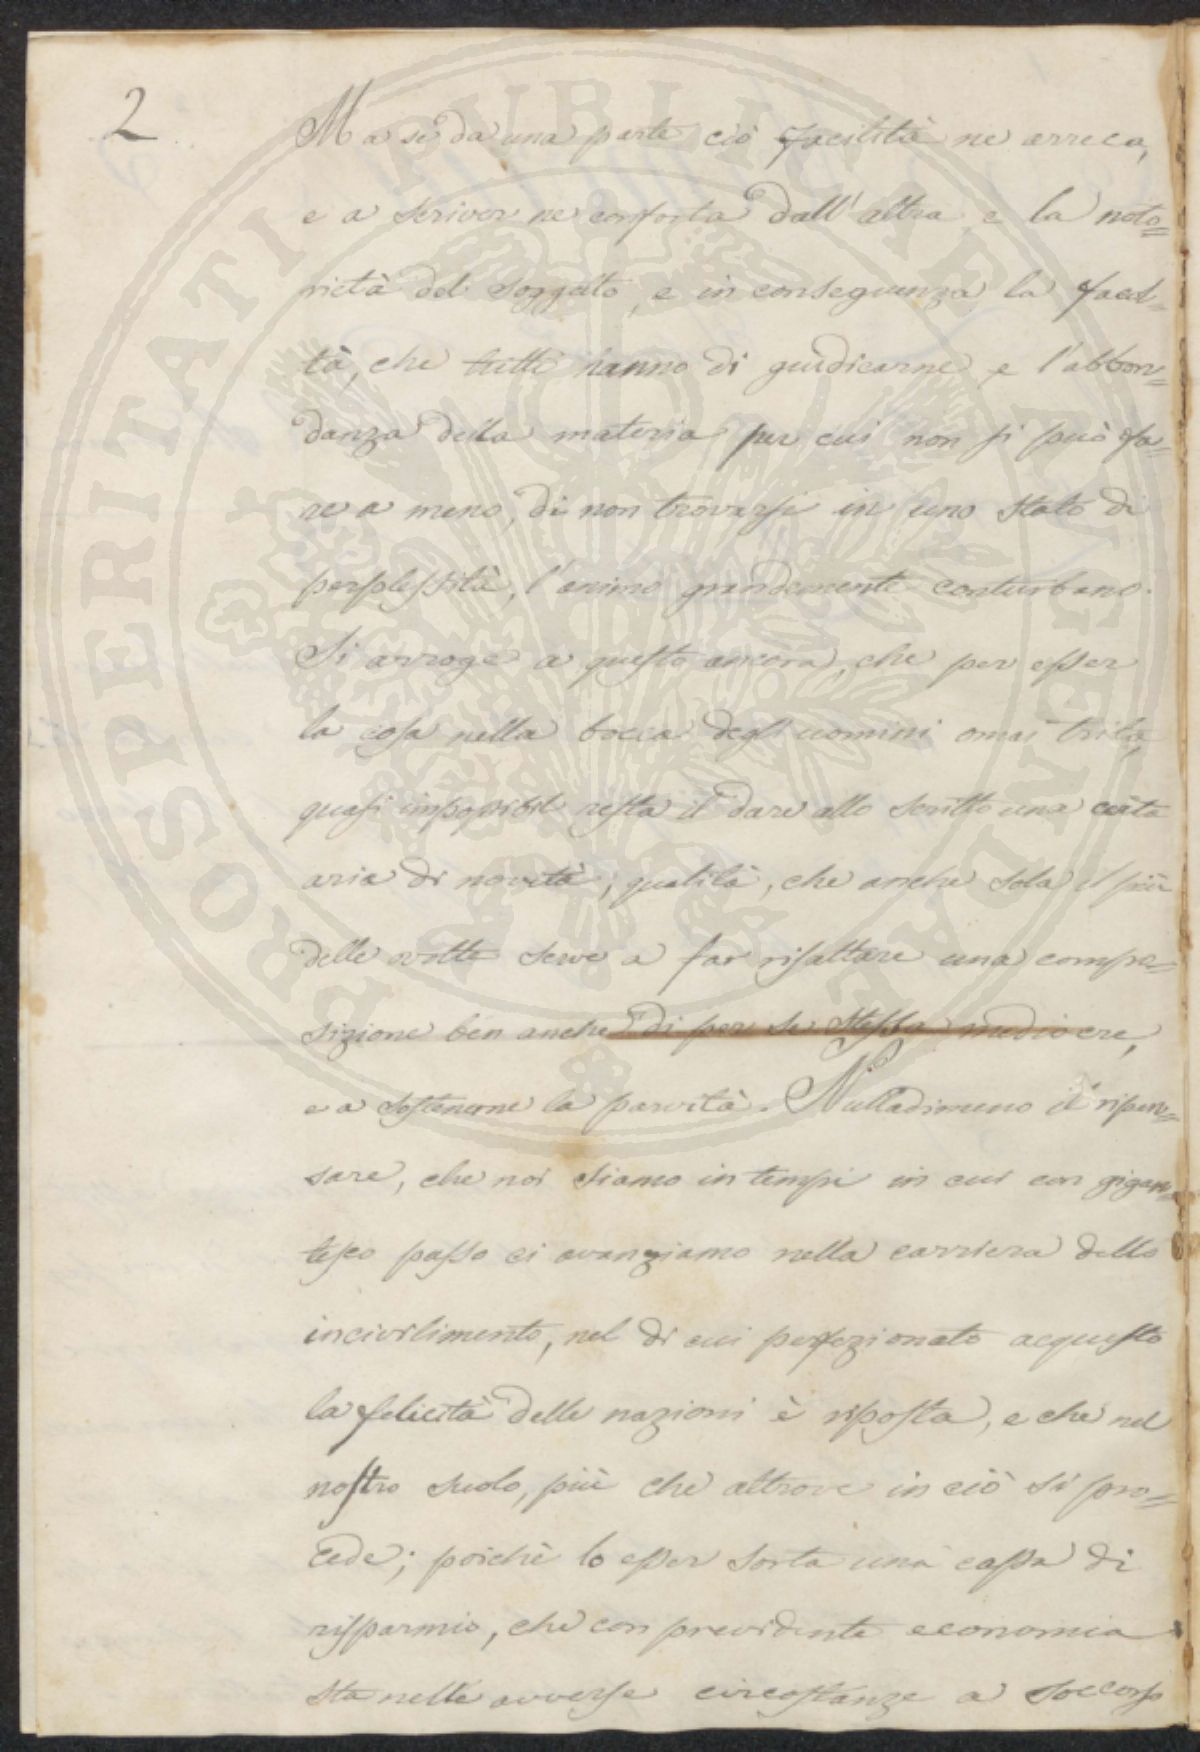 2
Ma se da una parte ciò facilità ne arreca,
e a scriver ne conforta dall'altra e la noto=
rietà del soggetto, e in conseguenza la facol=
tà, che tutti hanno di giudicarne, e l'abbon=
danza della materia, per cui non si può fa=
re a meno, di non trovarsi in uno stato di
perplessità, l'animo grandemente conturbano.
Si arroge a questo ancora, che per esser
la cosa nella bocca degl'uomini omai trita,
quasi impossibil resta il dare allo scritto una certa
aria di novità; qualità, che anche sola il più
delle volte serve a far risaltare una compo=
sizione ben anche di per se stessa mediocre,
e a sostenerne la parvità. Nulladimeno il ripen=
sare, che noi siamo in tempi in cui con gigan=
tesco passo ci avanziamo nella carriera dello
incivilimento, nel di cui perfezionato acquisto
la felicità delle nazioni è risposta, e che nel
nostro suolo, più che altrove in ciò si pro=
cede; poichè lo esser sorta una cassa di
risparmio, che con previdente economia
sta nelle avverse circostanze a soccorso
PROSPERITATI PUBLICAE AUGENDAE